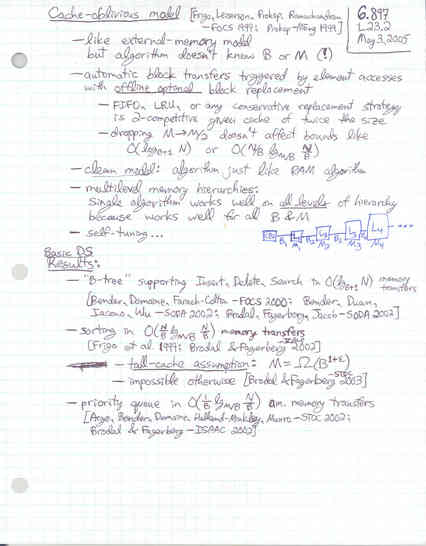 Cache-oblivious model [Frigo, Leiserson, Prokop, Ramachandran
– FOCS 1999; Prokop – MEng 1999]
6.897
L23.2
May 3, 2005
– like external-memory model
but algorithm doesn't know B or M (!)
– automatic block transfers triggered by element accesses
with offline optimal block replacement
– FIFO, LRU, or any conservative replacement strategy
is 2-competitive given cache of twice the size
– dropping M→M/2 doesn't affect bounds like
O(log_{B+1} N) or O(N/B lg_{M/B} N/B)
– clean model: algorithm just like RAM algorithm
– multilevel memory hierarchies:
single algorithm works well on all levels of hierarchy
because works well for all B & M
– self-tuning...
Basic DS
Results:
– "B-tree" supporting Insert, Delete, Search in O(log_{B+1} N) memory
transfers
[Bender, Demaine, Farach-Colton – FOCS 2000; Bender, Duan,
Iacono, Wu – SODA 2002; Brodal, Fagerberg, Jacob – SODA 2002]
– sorting in O(N/B lg_{M/B} N/B) memory transfers
[Frigo et al. 1999; Brodal & Fagerberg 2002]
– tall-cache assumption: M = Ω(B^{1+ε})
– impossible otherwise [Brodal & Fagerberg – STOC 2003]
– priority queue in O(1/B lg_{M/B} N/B) am. memory transfers
[Arge, Bender, Demaine, Holland-Minkley, Munro – STOC 2002;
Brodal & Fagerberg – ISAAC 2002]